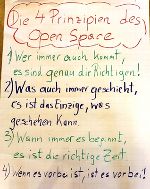 Die 4 Prinzipien des
Open Space
1) Wer immer auch kommt,
es sind genau die Richtigen!
2) Was auch immer geschieht,
es ist das Einzige, was
geschehen kann.
3) Wann immer es beginnt,
es ist die richtige Zeit
4) Wenn es vorbei ist, ist es vorbei!